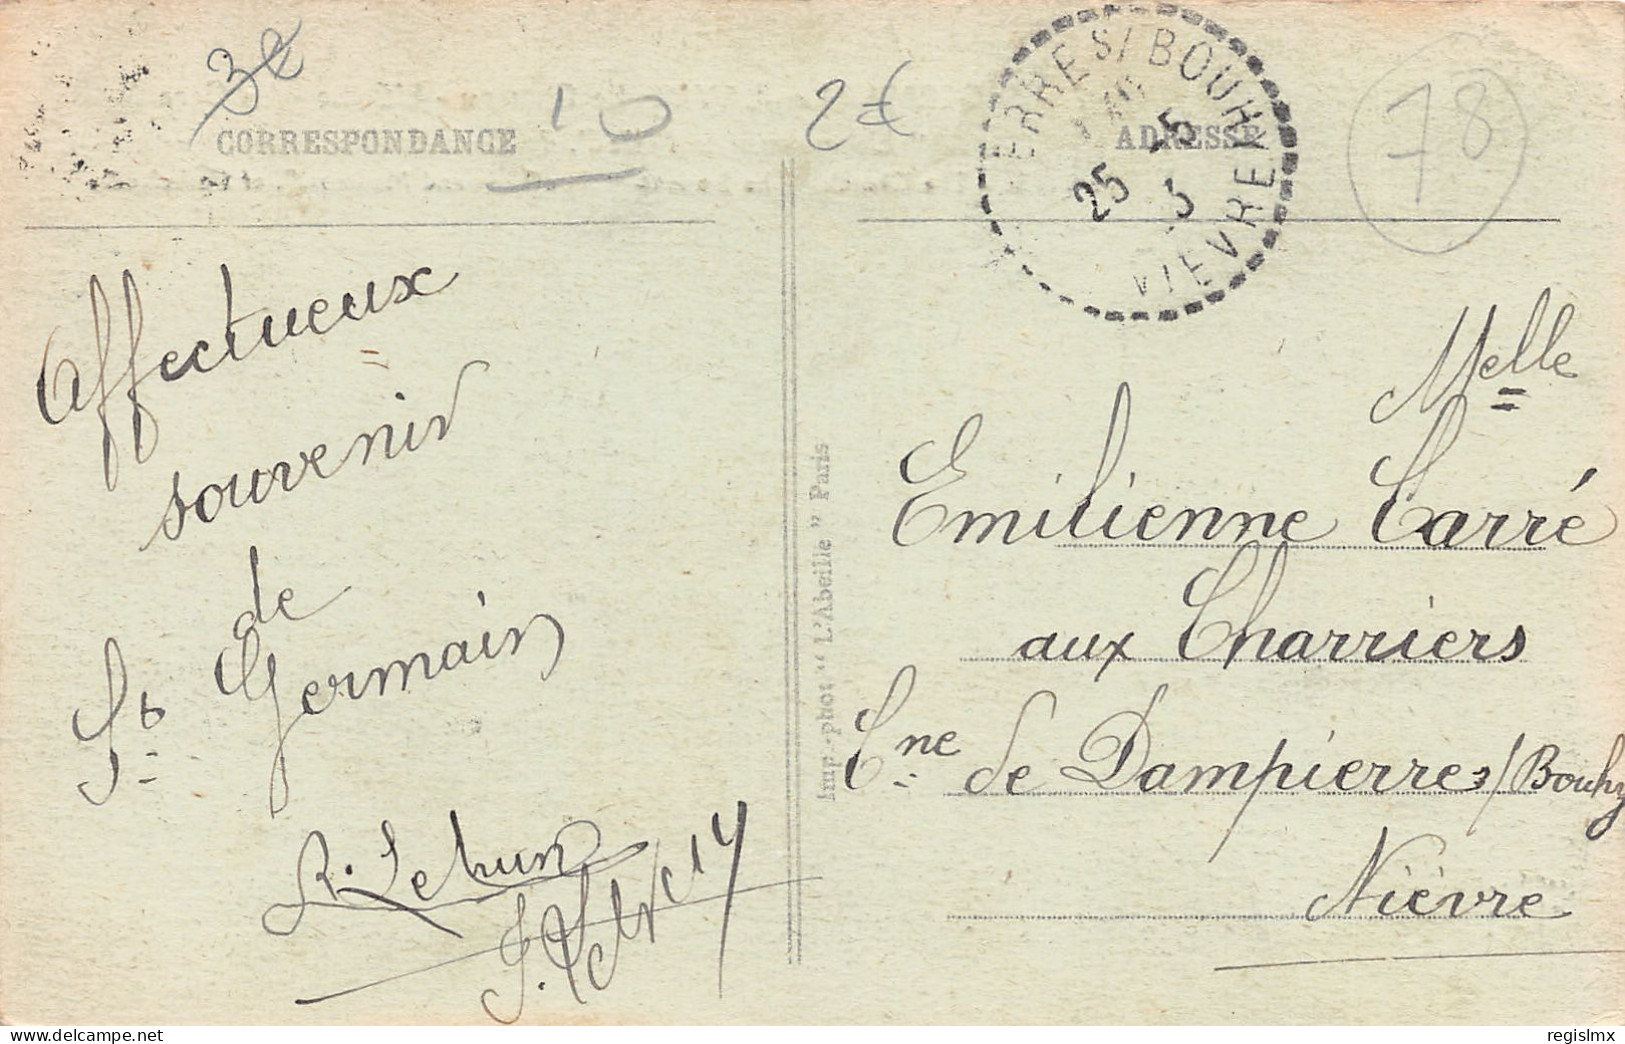 3€
10
2€
78
CORRESPONDANCE
ADRESSE
ERRE S/ BOUH
NIÈVRE
25 -5
3
Affectueux
souvenir
de
St Germain
R. Lehun
Imp.-phot "L'Abeille" Paris
Melle
Emilienne Carré
aux Charriers
Cne de Dampierre s/Bouhy
Nièvre
delcampe.net
regislmx